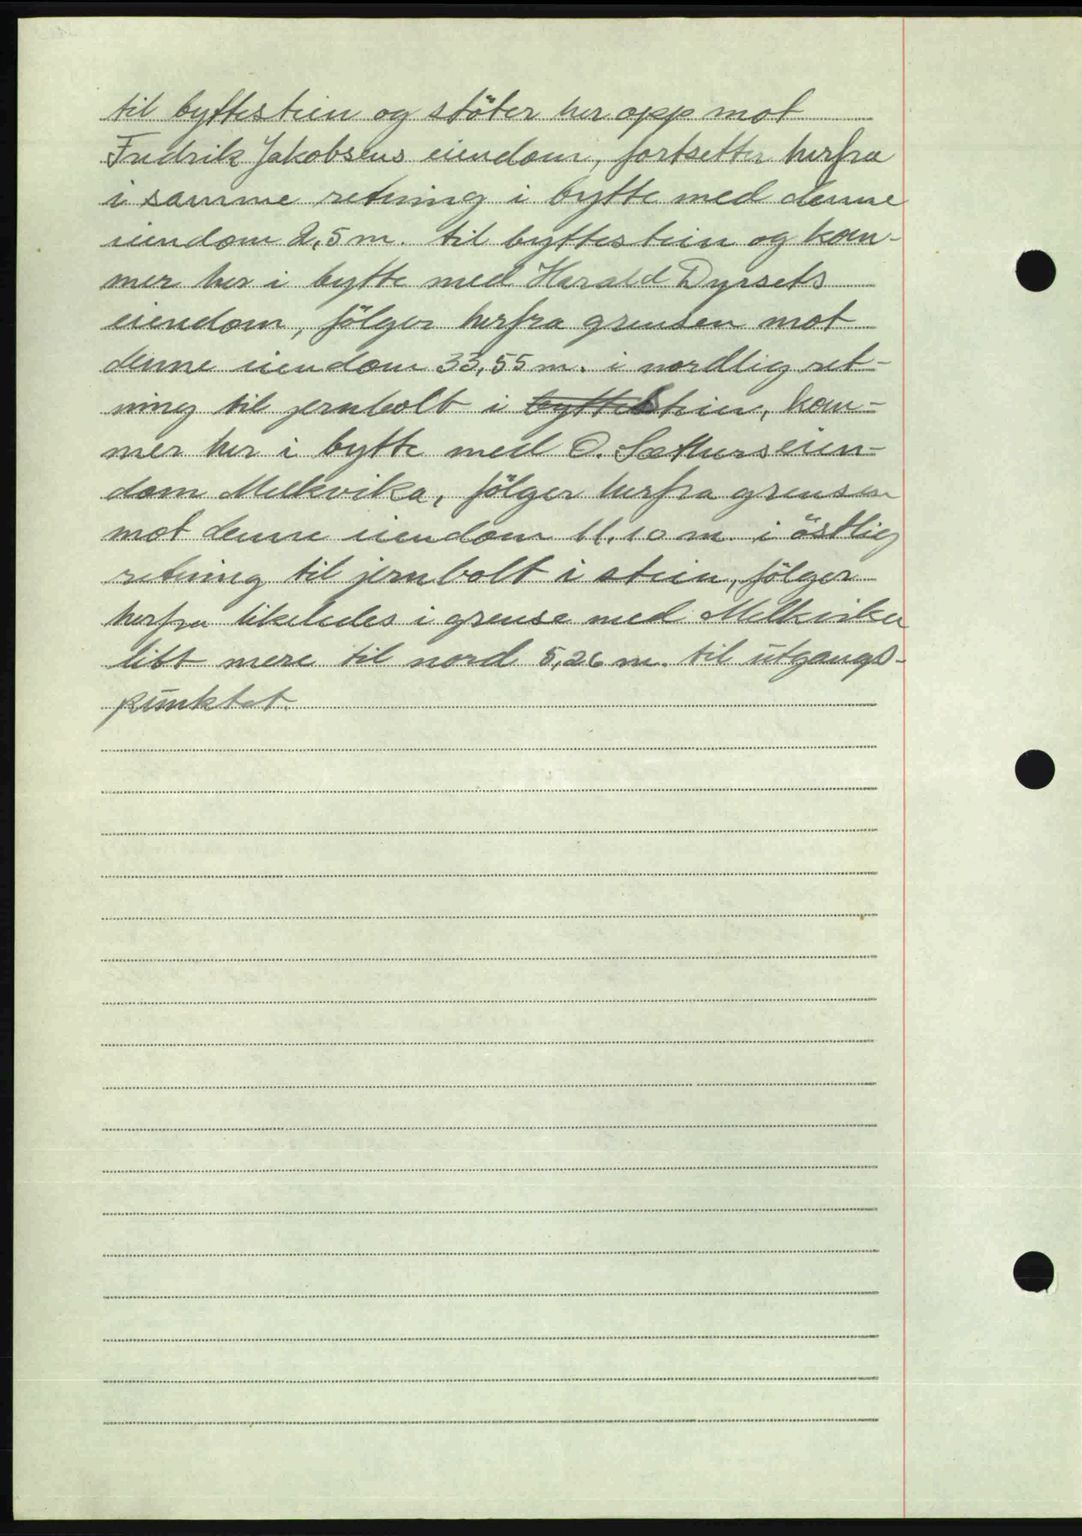 til byttestein og stöter her opp mot
Fredrik Jakobsens eiendom, fortsetter herfra
i samme retning i bytte med denne
eiendom 2,5 m. til byttestein og kom-
mer her i bytte med Harald Dyrsets
eiendom, fölger herfra grensen mot
denne eiendom 33,55 m. i nordlig ret-
ning til jernbolt i stein, kom-
mer her i bytte med O. Sæthers eien-
dom Melkvika, fölger herfra grensen
mot denne eiendom 11.10 m. i östlig
retning til jernbolt i stein, fölger
herfra likeledes i grense med Melkvika
litt mere til nord 5,26 m. til utgangs-
punktet.